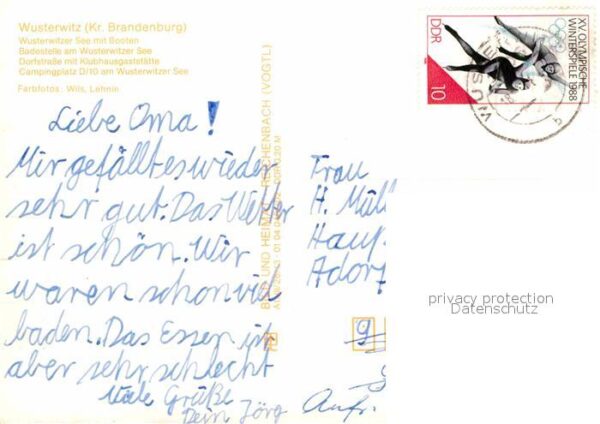 Wusterwitz (Kr. Brandenburg)
Wusterwitzer See mit Booten
Badestelle am Wusterwitzer See
Dorfstraße mit Klubhausgaststätte
Campingplatz D/10 am Wusterwitzer See
Farbfotos: Wils, Lehnin
Liebe Oma!
Mir gefällt es wieder
sehr gut. Das Wetter
ist schön. Wir
waren schon viel
baden. Das Essen ist
aber sehr schlecht
Viele Grüße
Dein Jörg
BILD UND HEIMAT REICHENBACH (VOGTL)
XV. OLYMPISCHE
WINTERSPIELE 1988
DDR
10
Frau
H. Mül
Haup
Adorf
9
privacy protection
Datenschutz